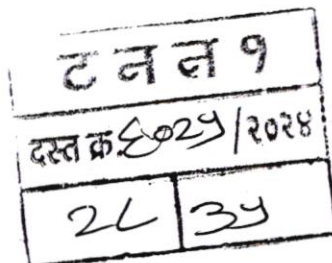 ट न न १
दस्त क्र. ६०२५/२०२४
२८ ३५